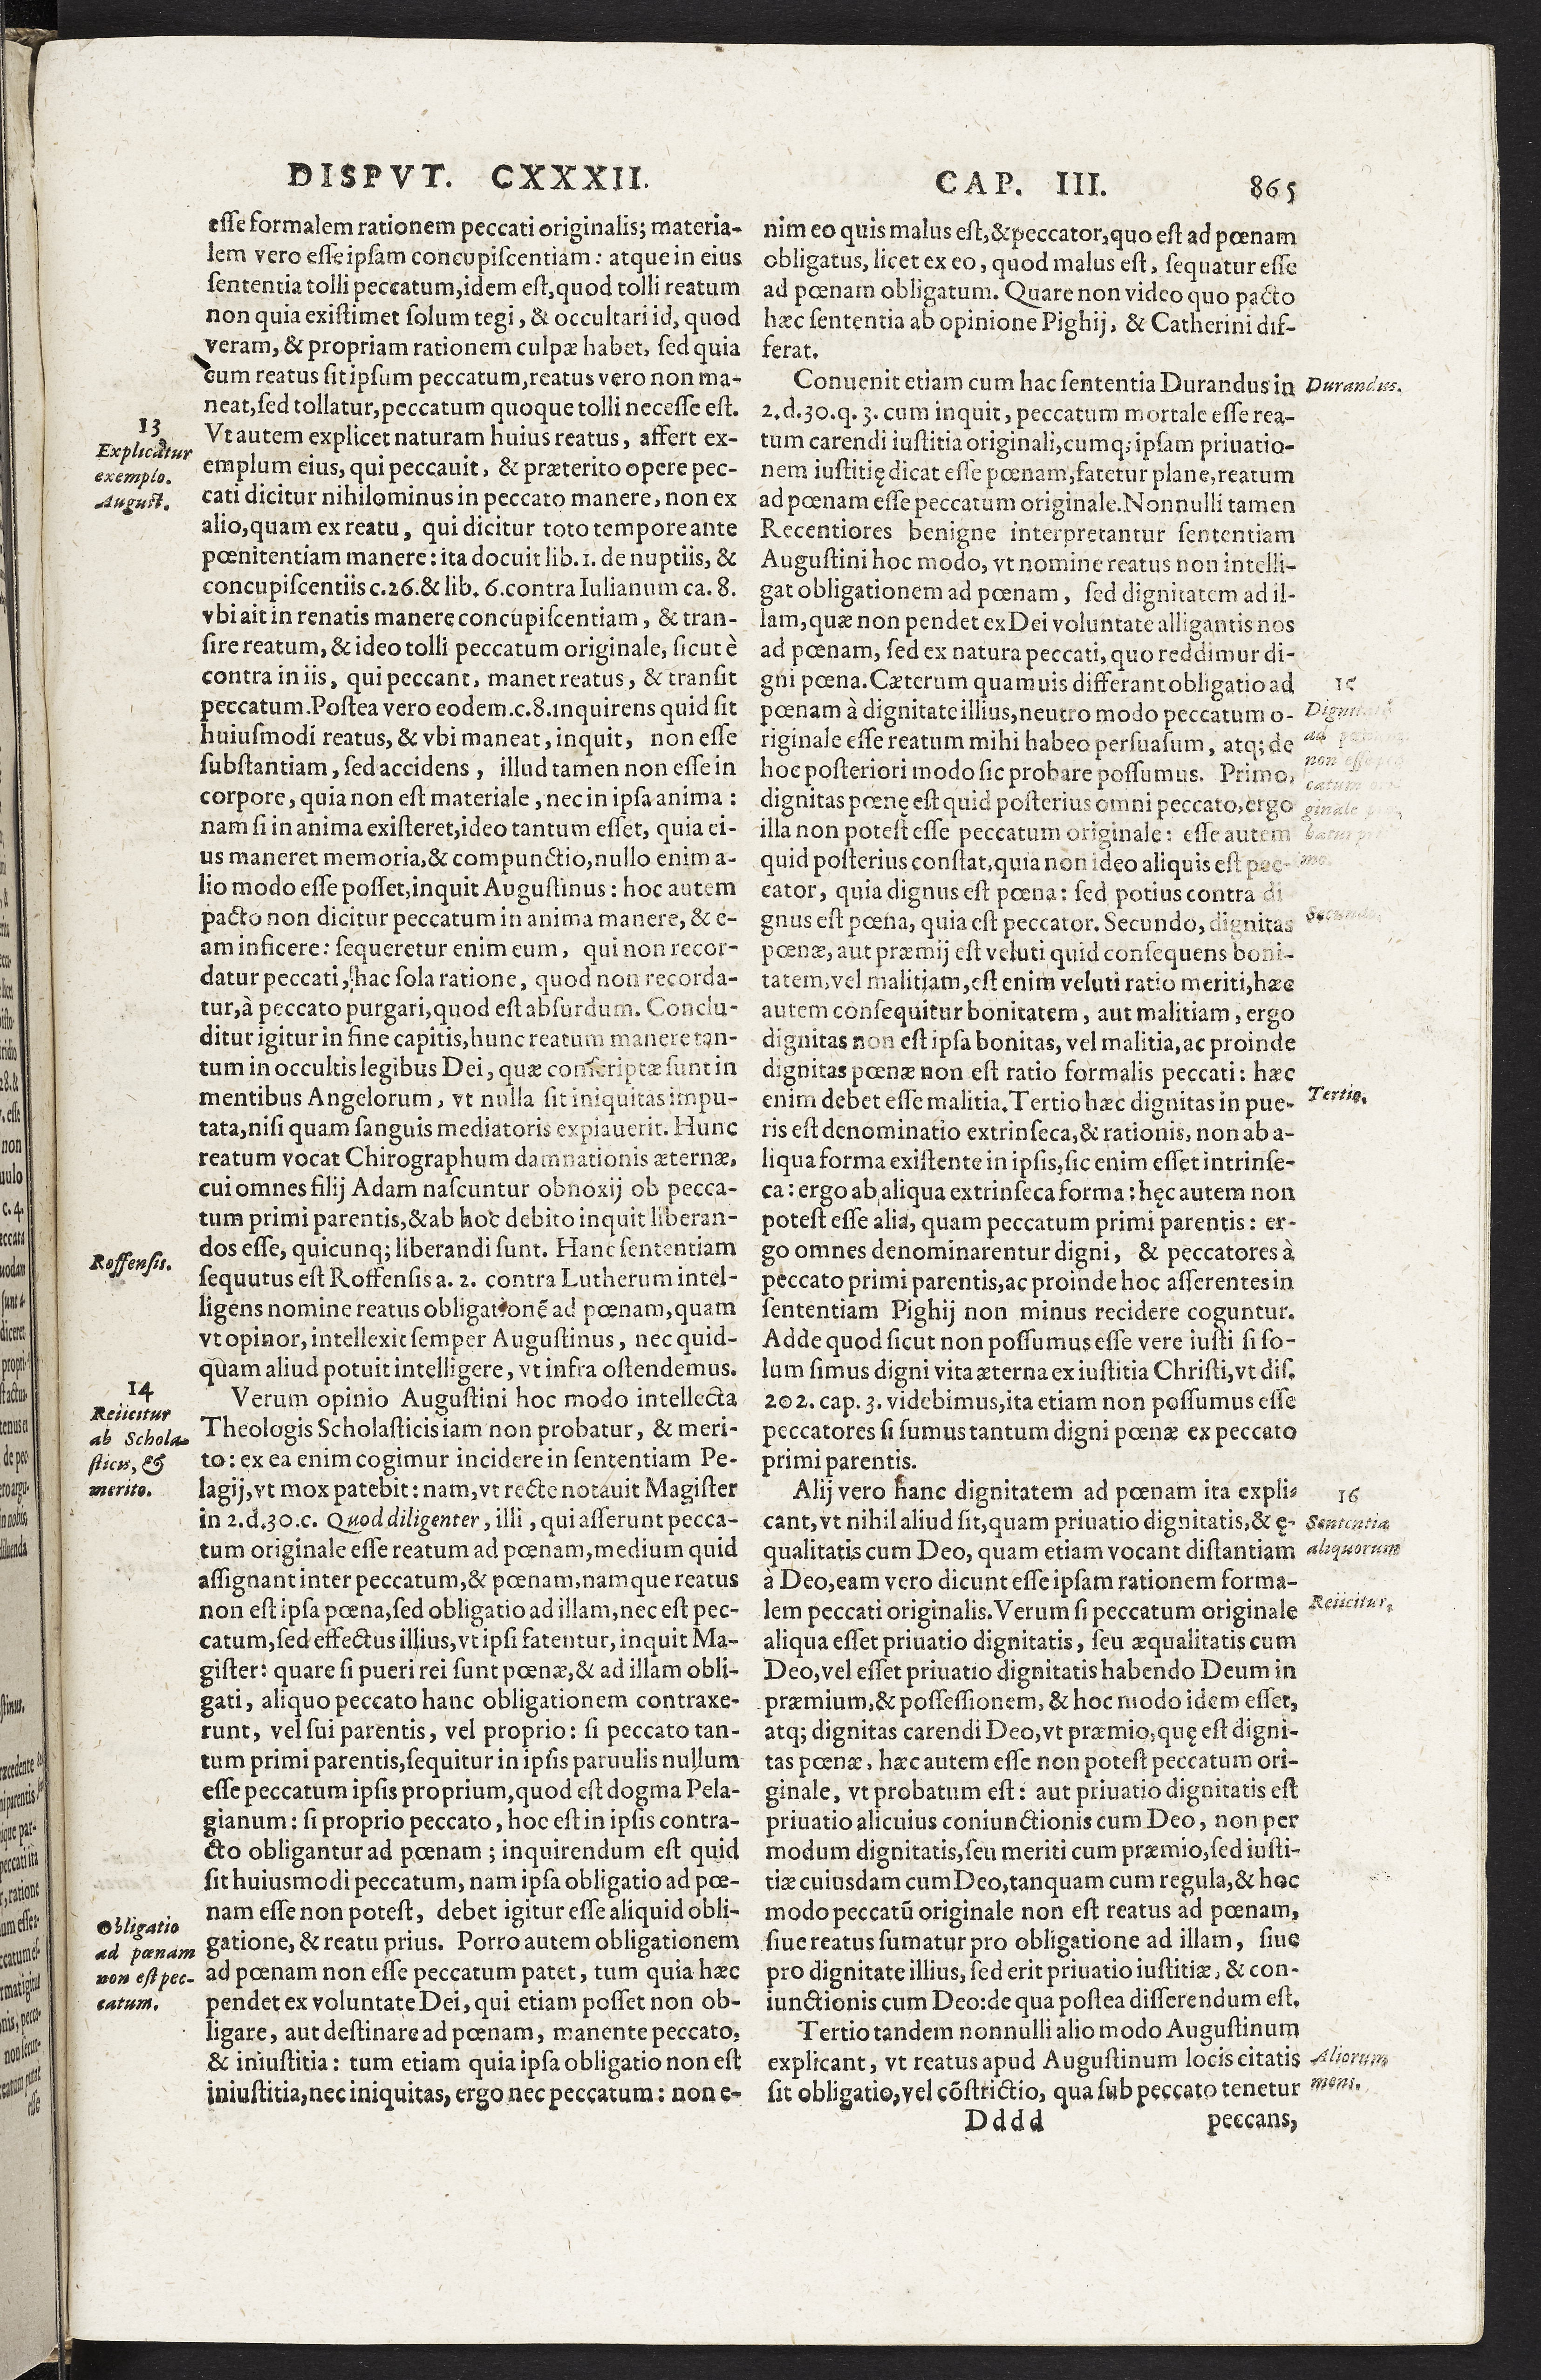 DISPVT. CXXXII.
CAP. III. 865
esse formalem rationem peccati originalis; materia-
lem vero esse ipsam concupiscentiam: atque in eius
sententia tolli peccatum, idem est, quod tolli reatum
non quia existimet solum tegi, & occultari id, quod
veram, & propriam rationem culpæ habet, sed quia
cum reatus sit ipsum peccatum, reatus vero non ma-
neat, sed tollatur, peccatum quoque tolli necesse est.
13
Explicatur
exemplo.
August.
Vt autem explicet naturam huius reatus, affert ex-
emplum eius, qui peccauit, & præterito opere pec-
cati dicitur nihilominus in peccato manere, non ex
alio, quam ex reatu, qui dicitur toto tempore ante
pœnitentiam manere: ita docuit lib. 1. de nuptiis, &
concupiscentiis c. 26. & lib. 6. contra Iulianum ca. 8.
vbi ait in renatis manere concupiscentiam, & tran-
sire reatum, & ideo tolli peccatum originale, sicut è
contra in iis, qui peccant, manet reatus, & transit
peccatum. Postea vero eodem. c. 8. inquirens quid sit
huiusmodi reatus, & vbi maneat, inquit, non esse
substantiam, sed accidens, illud tamen non esse in
corpore, quia non est materiale, nec in ipsa anima:
nam si in anima existeret, ideo tantum esset, quia ei-
us maneret memoria, & compunctio, nullo enim a-
lio modo esse posset, inquit Augustinus: hoc autem
pacto non dicitur peccatum in anima manere, & e-
am inficere: sequeretur enim eum, qui non recor-
datur peccati, hac sola ratione, quod non recorda-
tur, à peccato purgari, quod est absurdum. Conclu-
ditur igitur in fine capitis, hunc reatum manere tan-
tum in occultis legibus Dei, quæ conscriptæ sunt in
mentibus Angelorum, vt nulla sit iniquitas impu-
tata, nisi quam sanguis mediatoris expiauerit. Hunc
reatum vocat Chirographum damnationis æternæ,
cui omnes filij Adam nascuntur obnoxij ob pecca-
tum primi parentis, & ab hoc debito inquit liberan-
dos esse, quicunq; liberandi sunt. Hanc sententiam
Roffensis.
sequutus est Roffensis a. 2. contra Lutherum intel-
ligens nomine reatus obligationẽ ad pœnam, quam
vt opinor, intellexit semper Augustinus, nec quid-
quam aliud potuit intelligere, vt infra ostendemus.
14
Reiicitur
ab Schola-
sticis, &
merito.
Verum opinio Augustini hoc modo intellecta
Theologis Scholasticis iam non probatur, & meri-
to: ex ea enim cogimur incidere in sententiam Pe-
lagij, vt mox patebit: nam, vt recte notauit Magister
in 2. d. 30. c. Quod diligenter, illi, qui asserunt pecca-
tum originale esse reatum ad pœnam, medium quid
assignant inter peccatum, & pœnam, namque reatus
non est ipsa pœna, sed obligatio ad illam, nec est pec-
catum, sed effectus illius, vt ipsi fatentur, inquit Ma-
gister: quare si pueri rei sunt pœnæ, & ad illam obli-
gati, aliquo peccato hanc obligationem contraxe-
runt, vel sui parentis, vel proprio: si peccato tan-
tum primi parentis, sequitur in ipsis paruulis nullum
esse peccatum ipsis proprium, quod est dogma Pela-
gianum: si proprio peccato, hoc est in ipsis contra-
cto obligantur ad pœnam; inquirendum est quid
sit huiusmodi peccatum, nam ipsa obligatio ad pœ-
nam esse non potest, debet igitur esse aliquid obli-
Obligatio
ad pœnam
non est pec-
catum.
gatione, & reatu prius. Porro autem obligationem
ad pœnam non esse peccatum patet, tum quia hæc
pendet ex voluntate Dei, qui etiam posset non ob-
ligare, aut destinare ad pœnam, manente peccato,
& iniustitia: tum etiam quia ipsa obligatio non est
iniustitia, nec iniquitas, ergo nec peccatum: non e-
nim eo quis malus est, & peccator, quo est ad pœnam
obligatus, licet ex eo, quod malus est, sequatur esse
ad pœnam obligatum. Quare non video quo pacto
hæc sententia ab opinione Pighij, & Catherini dif-
ferat.
Conuenit etiam cum hac sententia Durandus in
Durandus.
2. d. 30. q. 3. cum inquit, peccatum mortale esse rea-
tum carendi iustitia originali, cumq; ipsam priuatio-
nem iustitię dicat esse pœnam, fatetur plane, reatum
ad pœnam esse peccatum originale. Nonnulli tamen
Recentiores benigne interpretantur sententiam
Augustini hoc modo, vt nomine reatus non intelli-
gat obligationem ad pœnam, sed dignitatem ad il-
lam, quæ non pendet ex Dei voluntate alligantis nos
ad pœnam, sed ex natura peccati, quo reddimur di-
gni pœna. Cæterum quamuis differant obligatio ad
15
pœnam à dignitate illius, neutro modo peccatum o-
riginale esse reatum mihi habeo persuasum, atq; de
hoc posteriori modo sic probare possumus. Primo,
dignitas pœnę est quid posterius omni peccato, ergo
illa non potest esse peccatum originale: esse autem
quid posterius constat, quia non ideo aliquis est pec-
cator, quia dignus est pœna: sed potius contra di
gnus est pœna, quia est peccator. Secundo, dignitas
Secundo.
pœnæ, aut præmij est veluti quid consequens boni-
tatem, vel malitiam, est enim veluti ratio meriti, hæc
autem consequitur bonitatem, aut malitiam, ergo
dignitas non est ipsa bonitas, vel malitia, ac proinde
dignitas pœnæ non est ratio formalis peccati: hæc
enim debet esse malitia. Tertio hæc dignitas in pue-
Tertio.
ris est denominatio extrinseca, & rationis, non ab a-
liqua forma existente in ipsis, sic enim esset intrinse-
ca: ergo ab aliqua extrinseca forma: hęc autem non
potest esse alia, quam peccatum primi parentis: er-
go omnes denominarentur digni, & peccatores à
peccato primi parentis, ac proinde hoc asserentes in
sententiam Pighij non minus recidere coguntur.
Adde quod sicut non possumus esse vere iusti si so-
lum simus digni vita æterna ex iustitia Christi, vt dis.
202. cap. 3. videbimus, ita etiam non possumus esse
peccatores si sumus tantum digni pœnæ ex peccato
primi parentis.
Alij vero hanc dignitatem ad pœnam ita expli-
16
Sententia
aliquorum
cant, vt nihil aliud sit, quam priuatio dignitatis, & ę-
qualitatis cum Deo, quam etiam vocant distantiam
à Deo, eam vero dicunt esse ipsam rationem forma-
lem peccati originalis. Verum si peccatum originale
Reiicitur.
aliqua esset priuatio dignitatis, seu æqualitatis cum
Deo, vel esset priuatio dignitatis habendo Deum in
præmium, & possessionem, & hoc modo idem esset,
atq; dignitas carendi Deo, vt præmio, quę est digni-
tas pœnæ, hæc autem esse non potest peccatum ori-
ginale, vt probatum est: aut priuatio dignitatis est
priuatio alicuius coniunctionis cum Deo, non per
modum dignitatis, seu meriti cum præmio, sed iusti-
tiæ cuiusdam cum Deo, tanquam cum regula, & hoc
modo peccatũ originale non est reatus ad pœnam,
siue reatus sumatur pro obligatione ad illam, siue
pro dignitate illius, sed erit priuatio iustitiæ, & con-
iunctionis cum Deo: de qua postea disserendum est.
Tertio tandem nonnulli alio modo Augustinum
explicant, vt reatus apud Augustinum locis citatis
Aliorum
mens.
sit obligatio, vel cõstrictio, qua sub peccato tenetur
Dddd peccans,